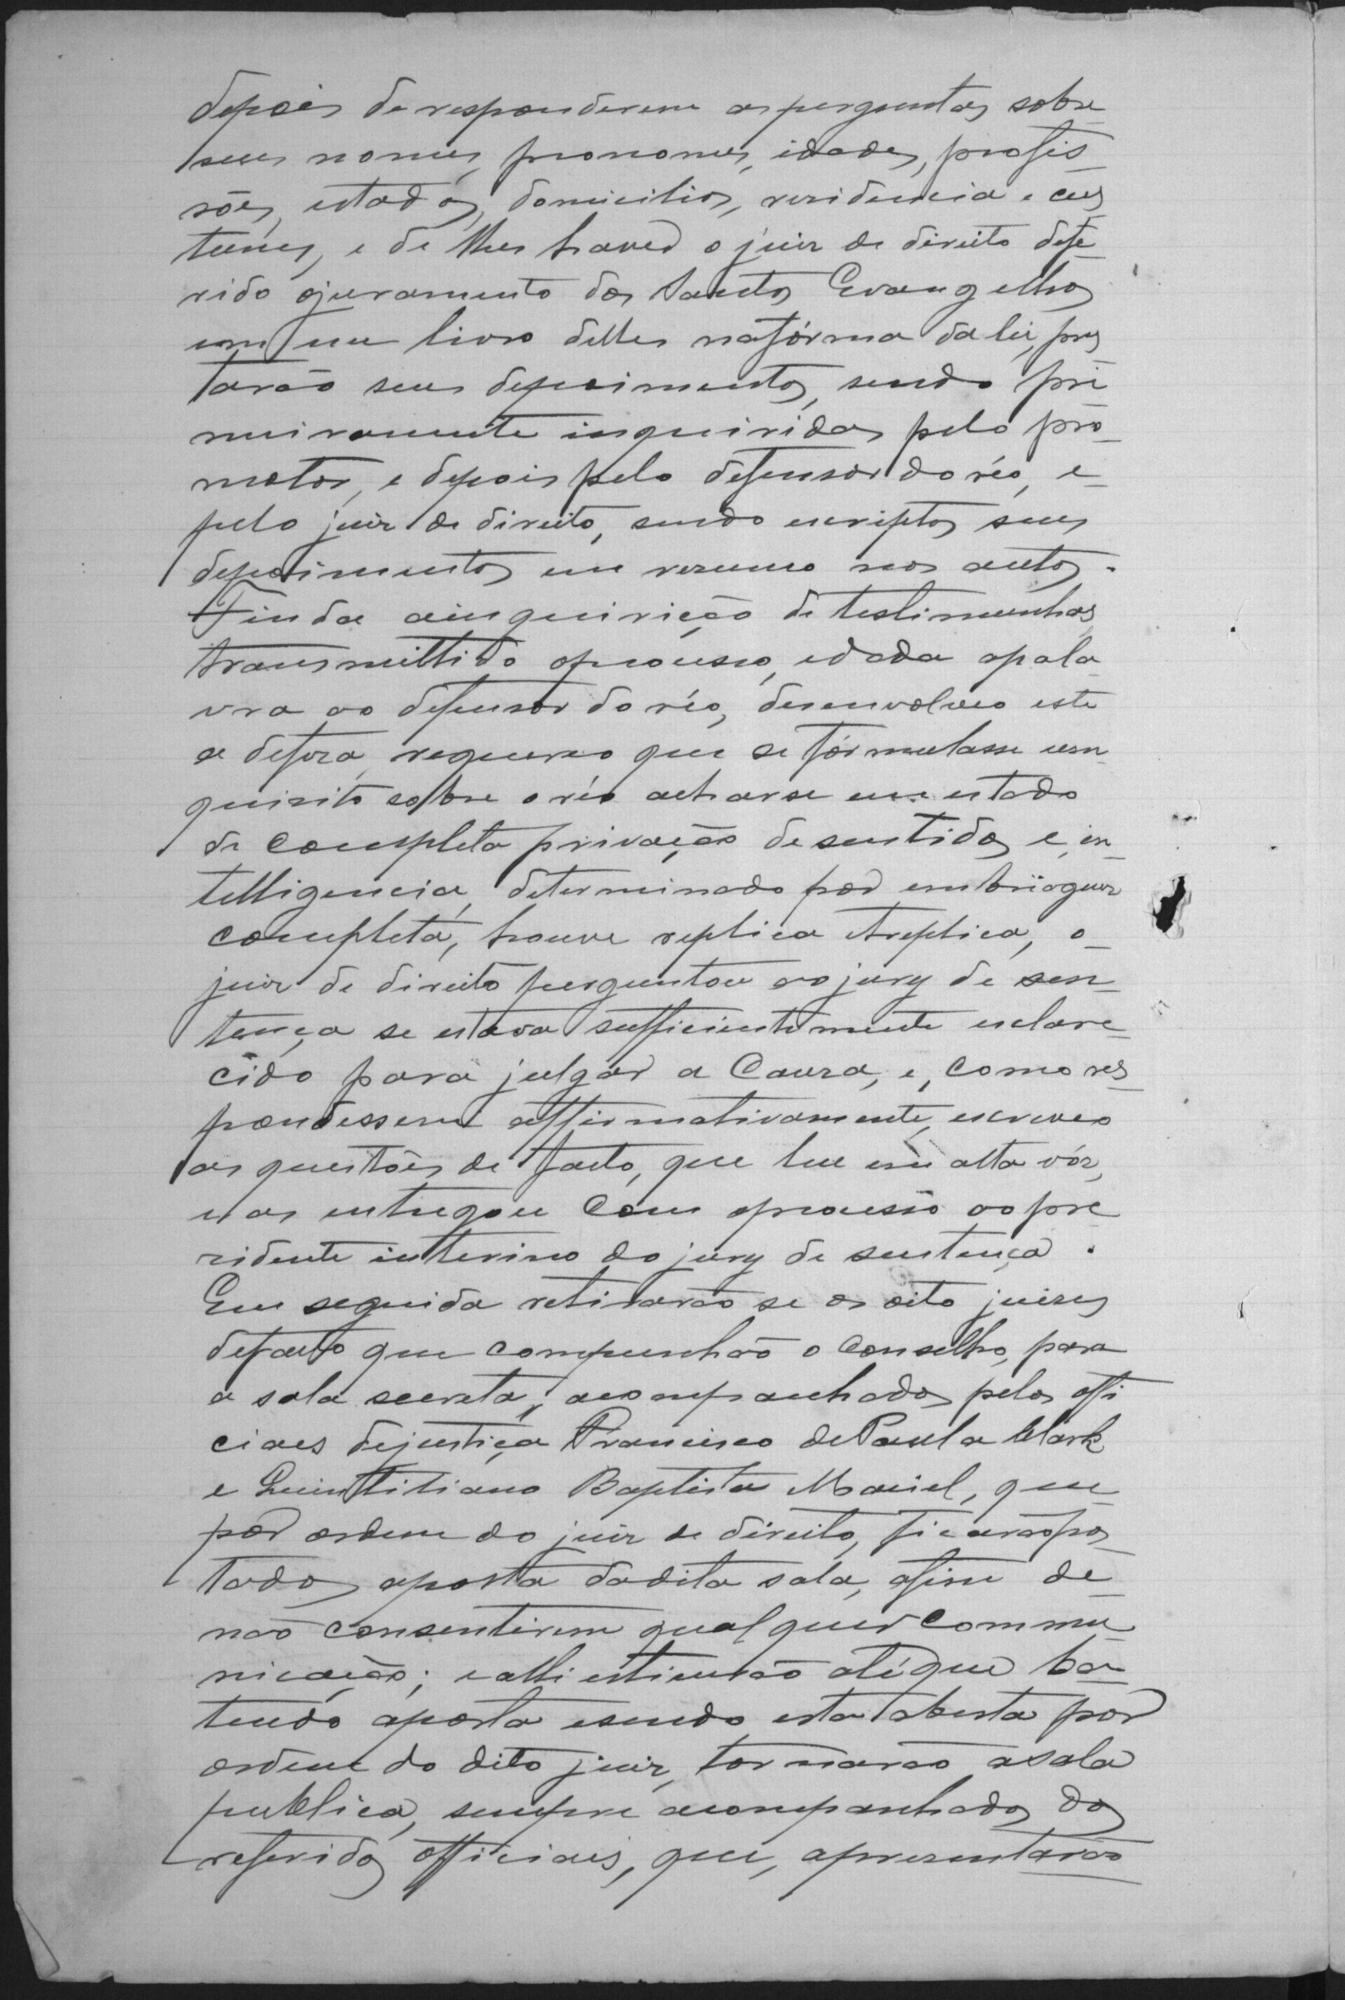 depois de responderem as perguntas sobre
seus nomes, pronomes, idades, profis
sões, estados, domicilios, residencia e cus
tumes, e de lhes haver o juiz de direito defe
rido o juramento dos Santos Evangelhos
em um livro delles na fórma da lei, pres
tarão seus depoimentos, sendo pri
meiramente inqueiridas pelo pro
motor, e depois pelo defensor do réo, e
pelo juiz de direito, sendo escriptos seus
depoimentos em resumo nos autos.
Finda a inqueirição de testimunhas,
transmittido o processo, e dada a pala
vra ao defensor do réo, desenvolveo este
a defeza, requereo que se formulasse um
quisito sobre o réo achar se em estado
de completa privação de sentidos e in
telligencia, determinado por embriaguez
completa, houve replica e treplica, o
juiz de direito perguntou ao jury de sen
tença se estava sufficientemente esclare
cido para julgar a Causa, e, como res
pondessem affirmativamente, escreveo
as questões de facto, que leu em alta vóz,
e as entregou com o processo ao pre
zidente interino do jury de sentença.
Em seguida retirarão se os oito juizes
de facto que compunhão o conselho, para
a sala secreta, acompanhados pelos offi
ciaes de justiça Francisco de Paula Clark
e Quintiliano Baptista Maciel, que
por ordem do juiz de direito, ficarão pos
tados a porta da dita sala, afim de
não consentirem qualquer commu
nicação; e alli estiverão até que ba
tendo a porta e sendo esta aberta por
ordem do dito juiz, tornarão a sala
publica, sempre acompanhados dos
referidos officiaes, que, apresentarão